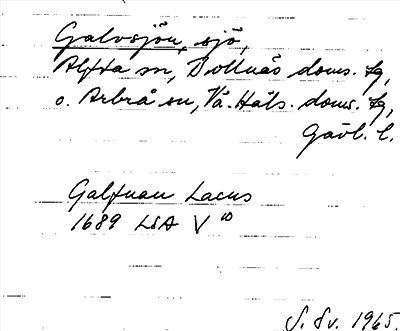 Galvsjön, sjö,
Alfta sn, Bollnäs doms. fg,
o. Arbrå sn, Vä. Häls. doms. fg,
Gävl. l.
Galfuan Lacus
1689 LSA V 10
S. Sv. 1965.